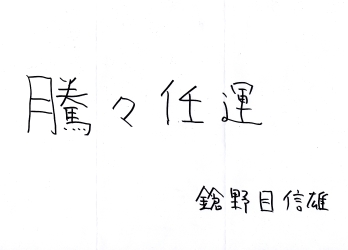 騰々任運
鎗野目信雄